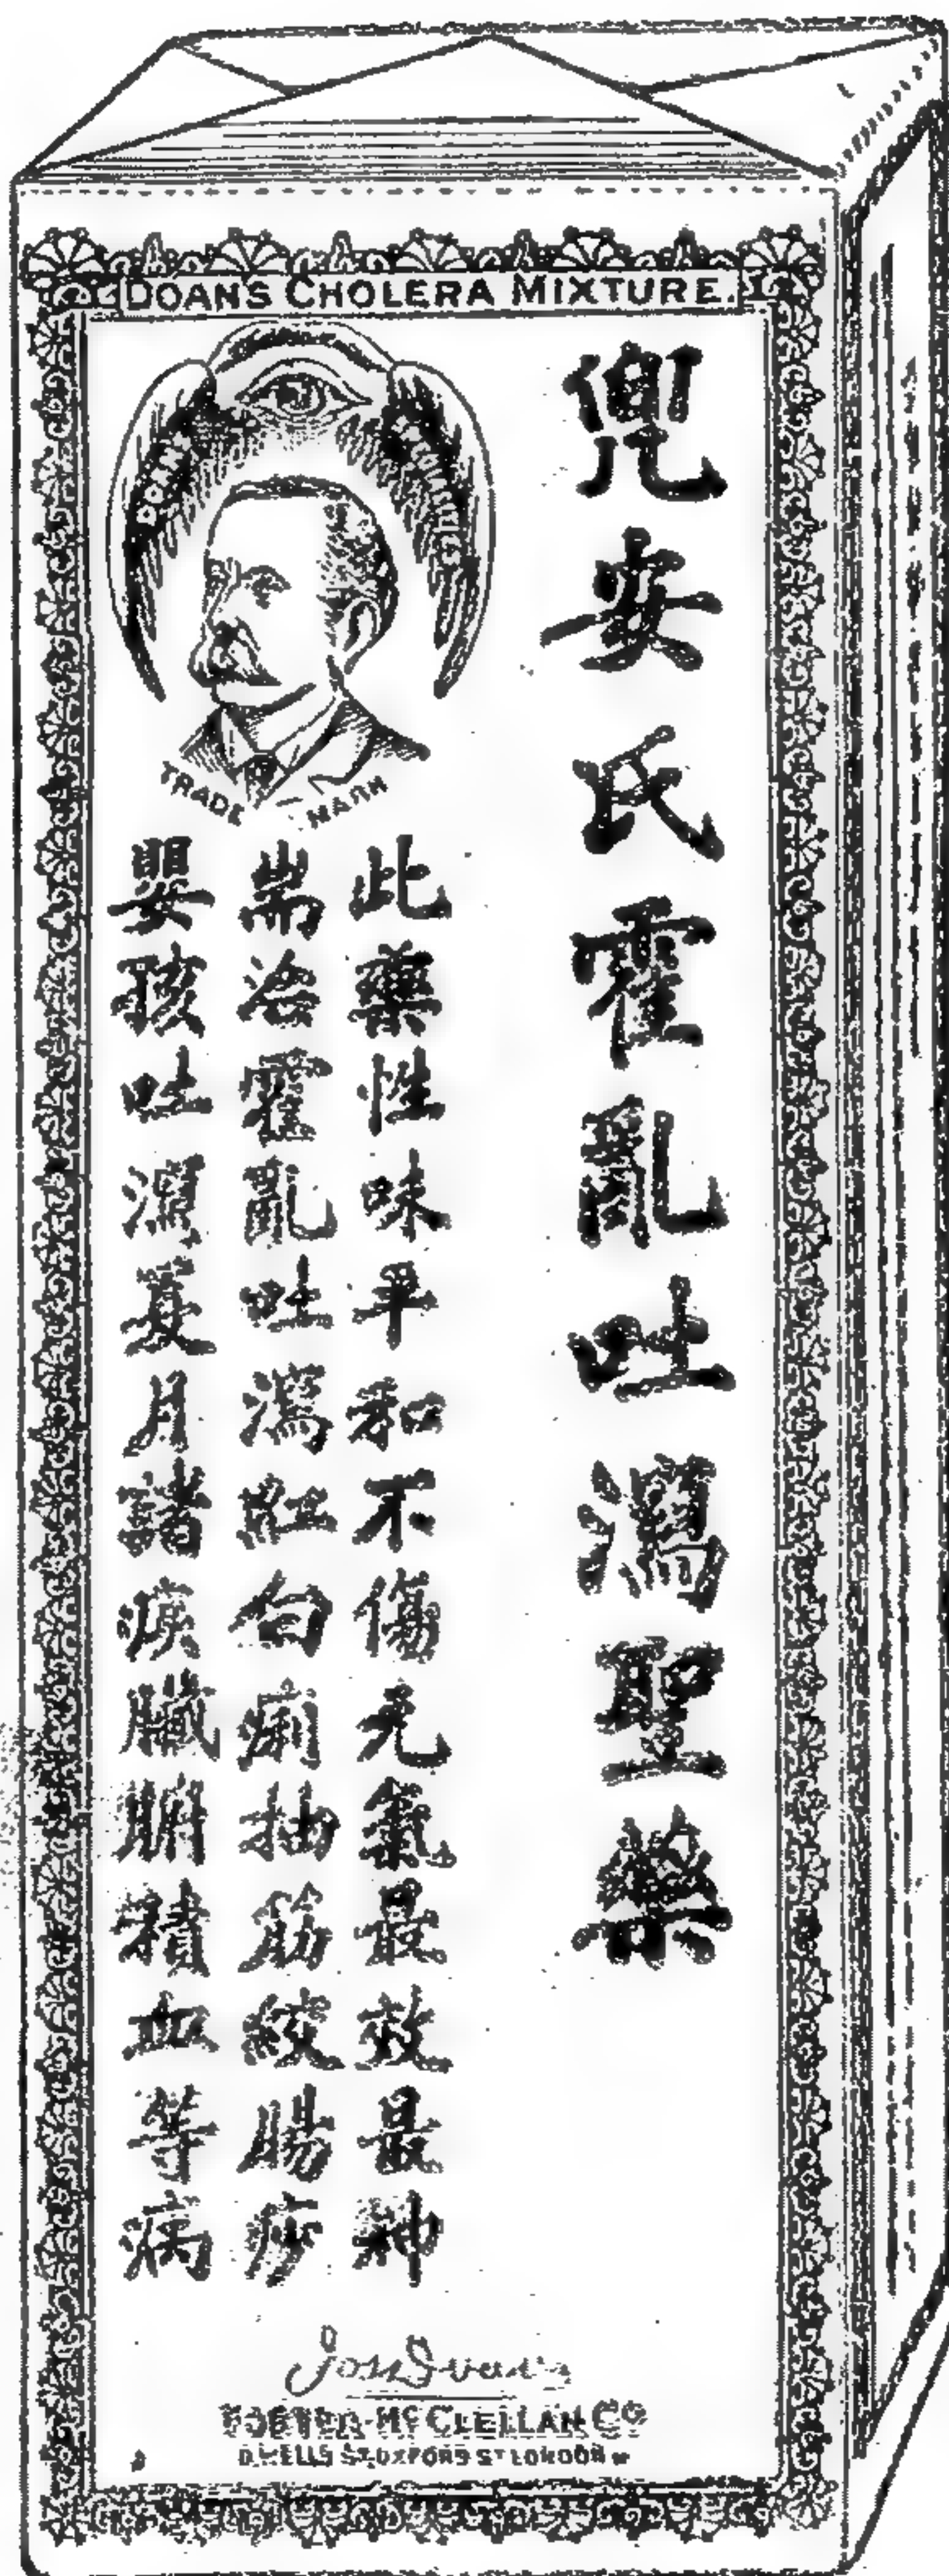 DOAN'S CHOLERA MIXTURE.
DOAN'S
TRADE MARK
兜安氏霍亂吐瀉聖藥
此藥性味平和不傷元氣最效最神
耑治霍亂吐瀉紅白痢抽筋絞腸痧
嬰孩吐瀉夏月諸痰臟腑積血等病
FOSTER-McCLELLAN Co
WELLS ST. OXFORD ST LONDON W